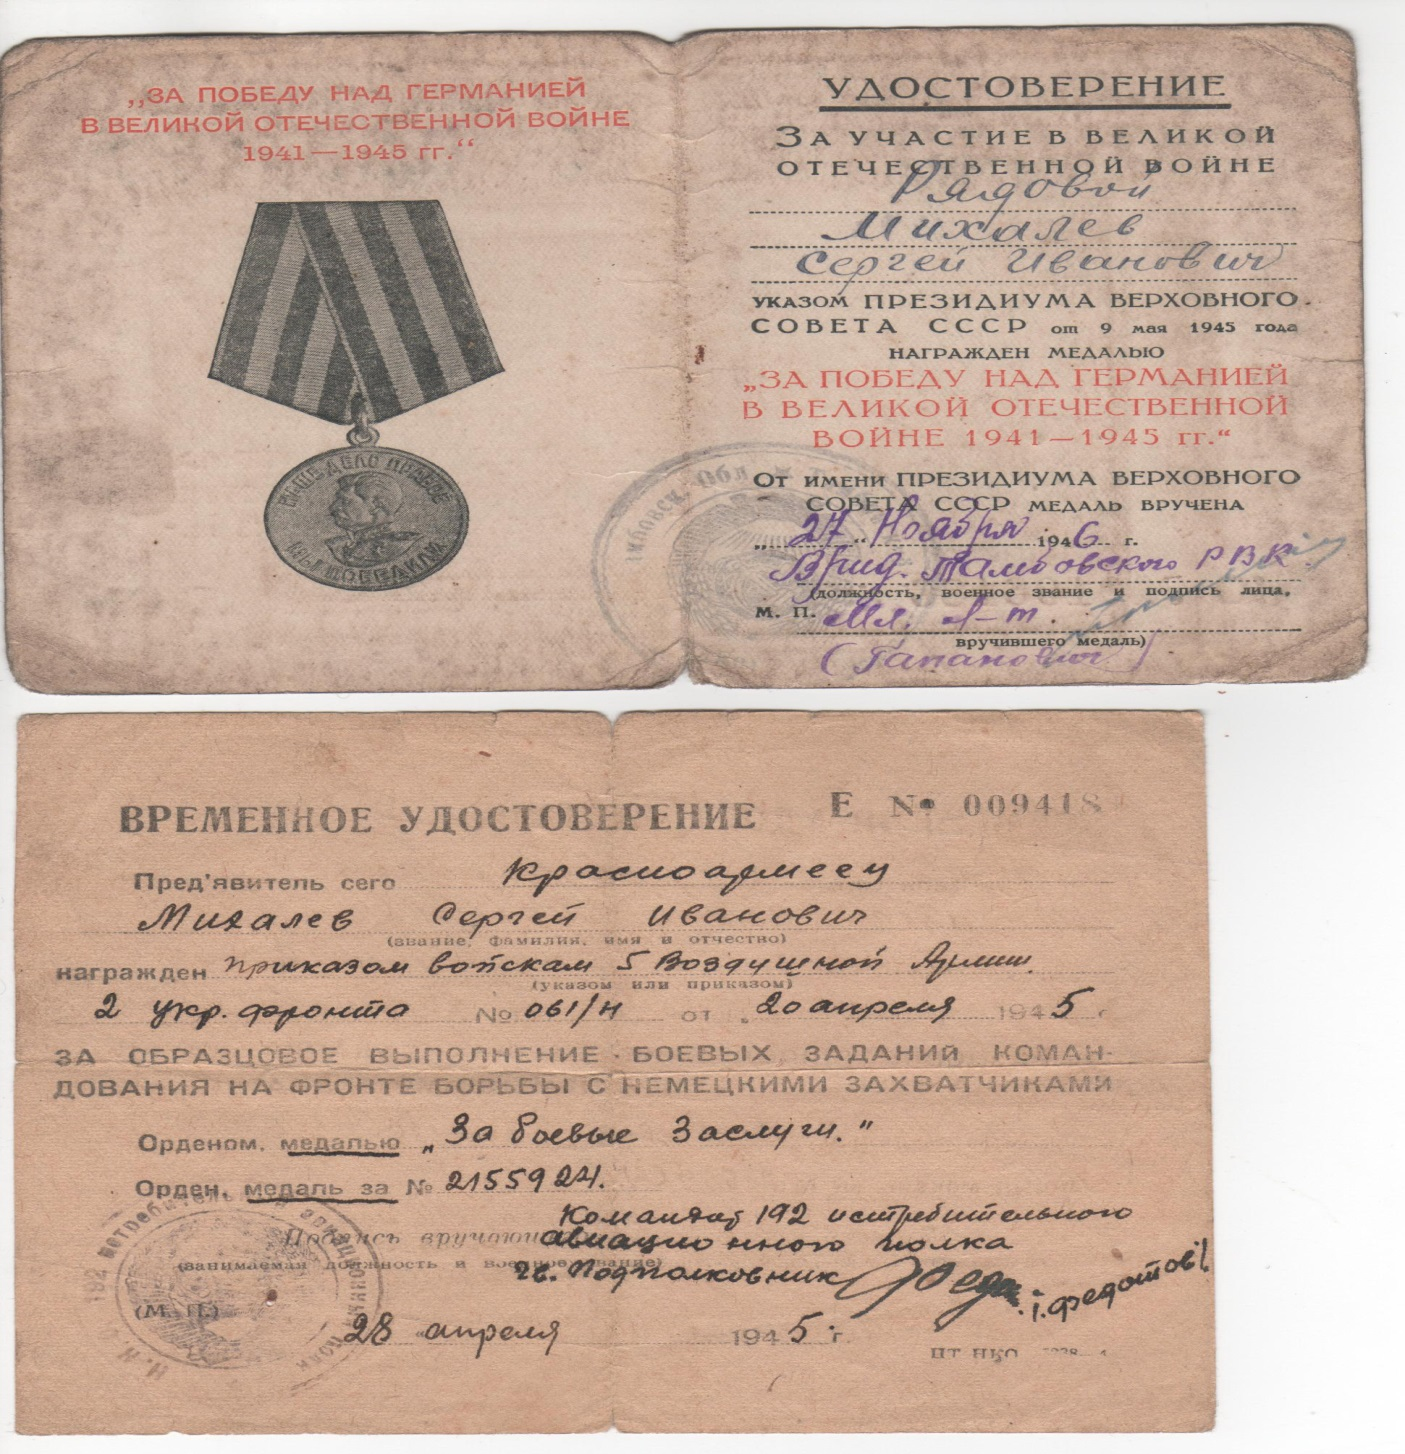 „ЗА ПОБЕДУ НАД ГЕРМАНИЕЙ
В ВЕЛИКОЙ ОТЕЧЕСТВЕННОЙ ВОЙНЕ
1941—1945 гг.“
НАШЕ ДЕЛО ПРАВОЕ
МЫ ПОБЕДИЛИ
УДОСТОВЕРЕНИЕ
ЗА УЧАСТИЕ В ВЕЛИКОЙ
ОТЕЧЕСТВЕННОЙ ВОЙНЕ
Рядовой
Михалев
Сергей Иванович
УКАЗОМ ПРЕЗИДИУМА ВЕРХОВНОГО
СОВЕТА СССР от 9 мая 1945 года
НАГРАЖДЕН МЕДАЛЬЮ
„ЗА ПОБЕДУ НАД ГЕРМАНИЕЙ
В ВЕЛИКОЙ ОТЕЧЕСТВЕННОЙ
ВОЙНЕ 1941—1945 гг.“
ОТ ИМЕНИ ПРЕЗИДИУМА ВЕРХОВНОГО
СОВЕТА СССР МЕДАЛЬ ВРУЧЕНА
„27„ Ноября 1946 г.
Врид. Тамбовского РВК
(должность, военное звание и подпись лица,
М. П. Мл. л-т.
вручившего медаль)
(Гапанович)
ВРЕМЕННОЕ УДОСТОВЕРЕНИЕ Е № 009418
Пред'явитель сего Красноармеец
Михалев Сергей Иванович
(звание, фамилия, имя и отчество)
награжден приказом войскам 5 Воздушной Армии.
(указом или приказом)
2 укр. фронта № 061/н от „20 апреля 1945 г
ЗА ОБРАЗЦОВОЕ ВЫПОЛНЕНИЕ БОЕВЫХ ЗАДАНИЙ КОМАН-
ДОВАНИЯ НА ФРОНТЕ БОРЬБЫ С НЕМЕЦКИМИ ЗАХВАТЧИКАМИ
Орденом, медалью „За боевые заслуги."
Орден, медаль за № 2155924.
Командир 192 истребительного
Подпись вручаю авиационного полка
(занимаемая должность и военное звание)
гв. Подполковник /Федотов/
(М. П.)
28 апреля 1945 г.
ЦТ НКО